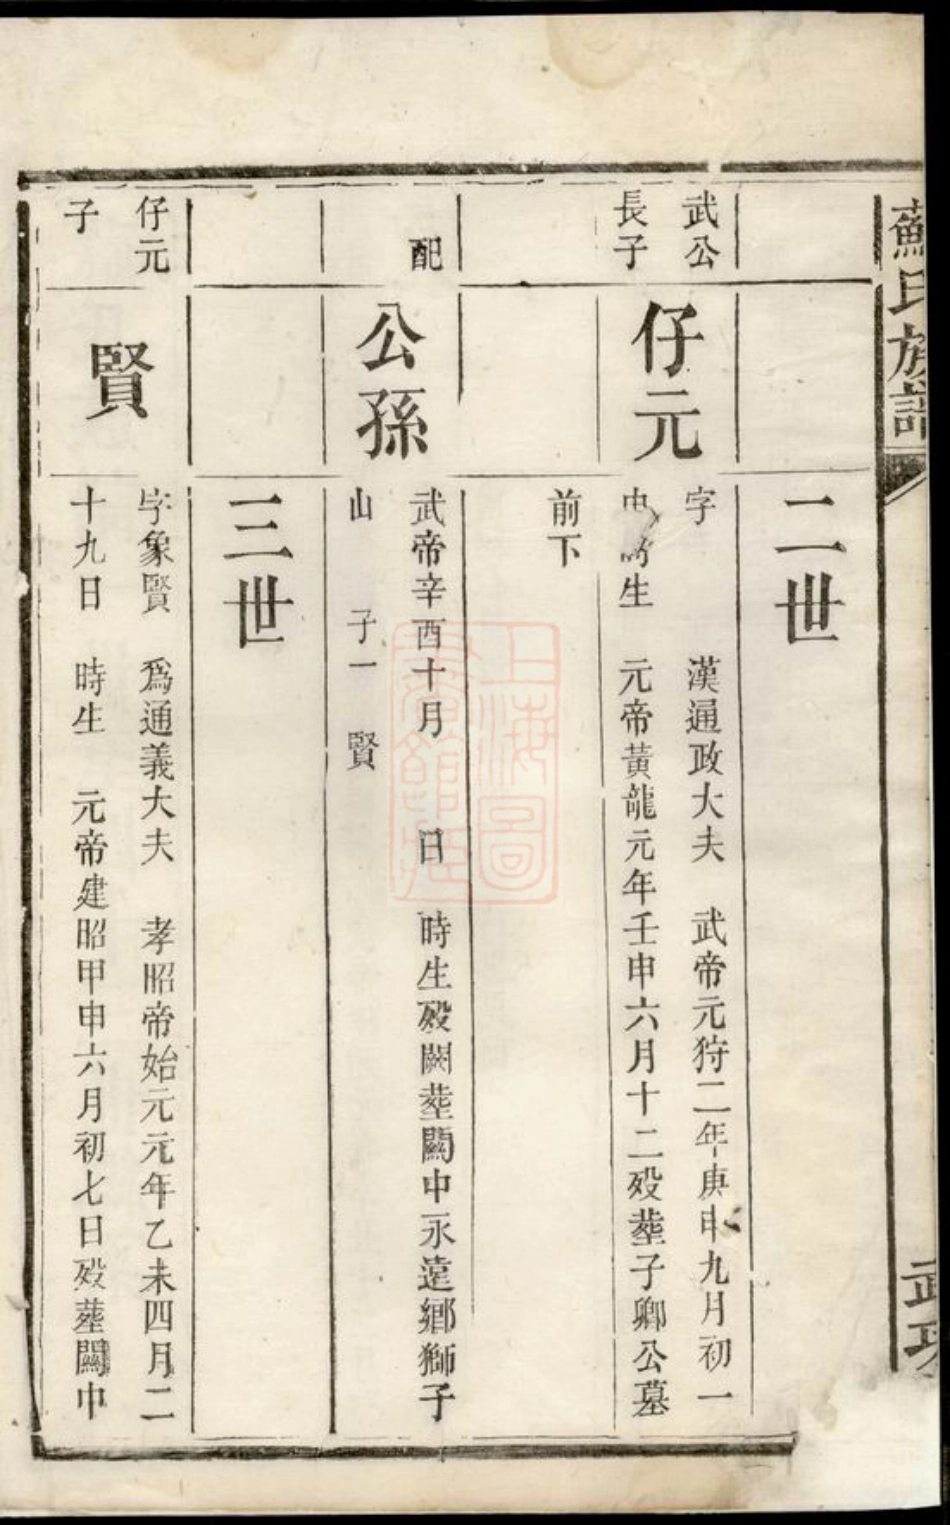 蘇氏族譜
武功
二世
武公
長子
仔元
字 漢通政大夫 武帝元狩二年庚申九月初一
時生 元帝黃龍元年壬申六月十二歿塟子卿公墓
前下
配
公孫
武帝辛酉十月 日 時生歿闕塟關中永遠鄉獅子
山 子一 賢
三世
仔元
子
賢
字象賢 爲通義大夫 孝昭帝始元元年乙未四月二
十九日 時生 元帝建昭甲申六月初七日歿塟關中
上海圖
書館藏